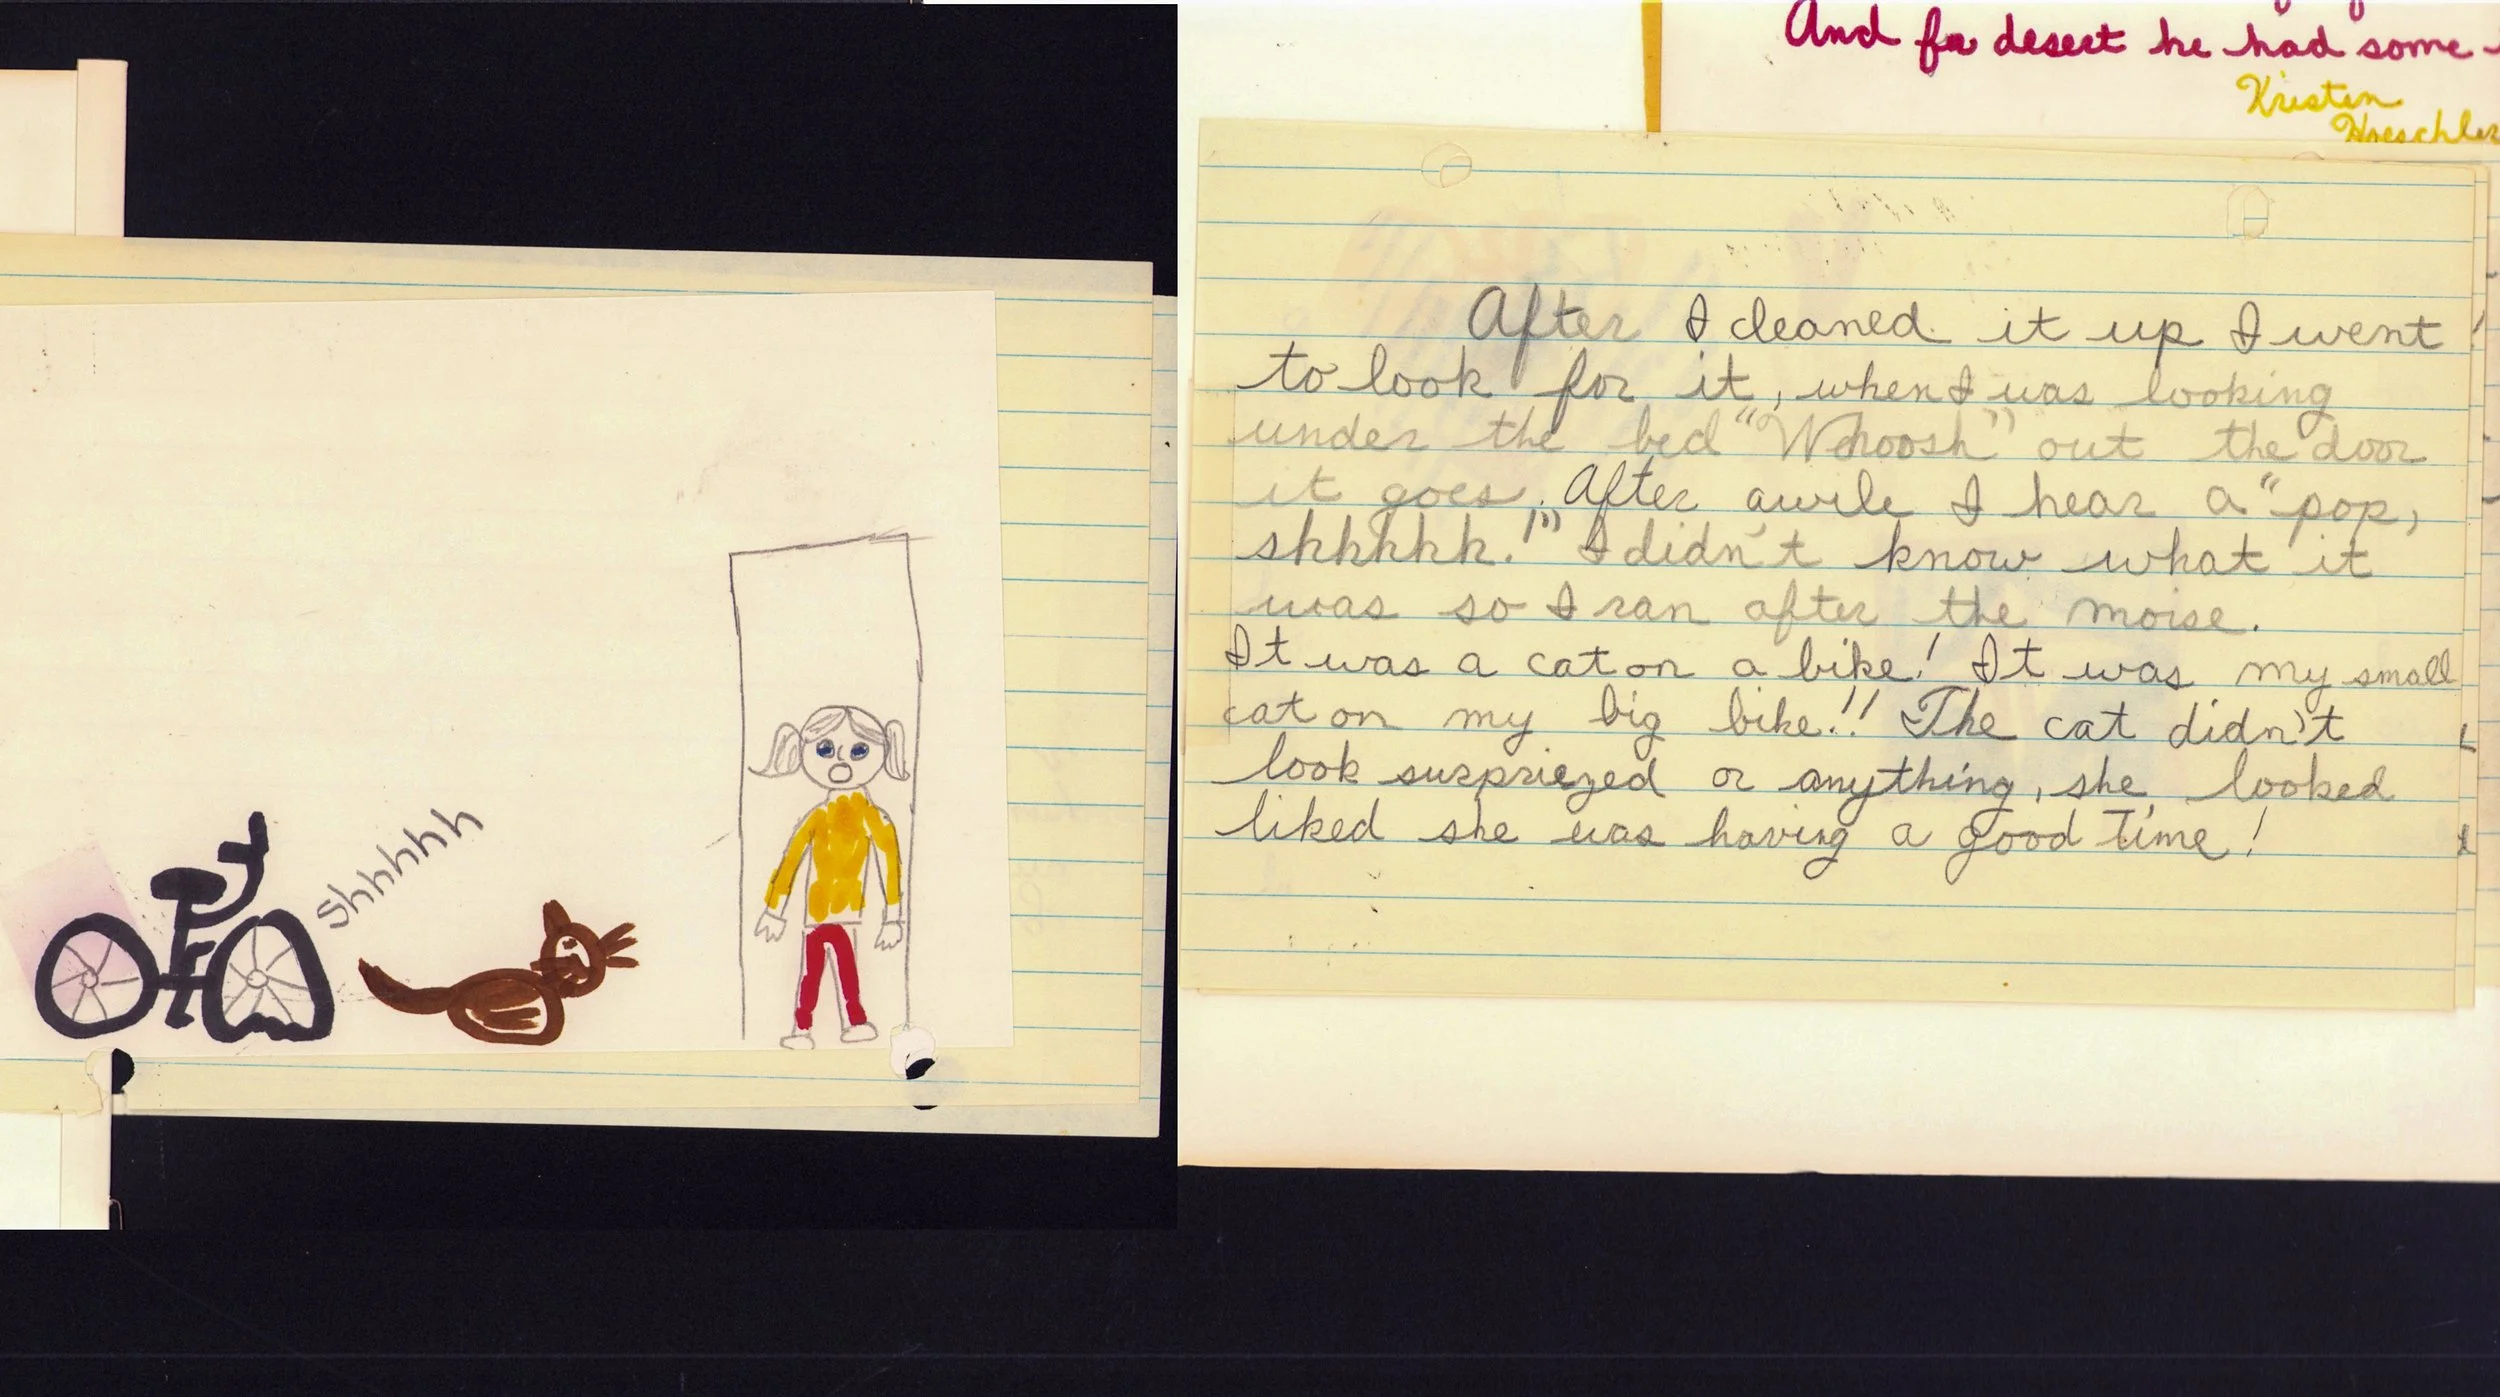 shhhhh
And for desert he had some
Kristen
Hoeschler
After I cleaned it up I went
to look for it, when I was looking
under the bed "Whoosh" out the door
it goes. After awile I hear a "pop,
shhhhh!" I didn't know what it
was so I ran after the moise.
It was a cat on a bike! It was my small
cat on my big bike!! The cat didn't
look surpriezed or anything, she looked
liked she was having a good time!